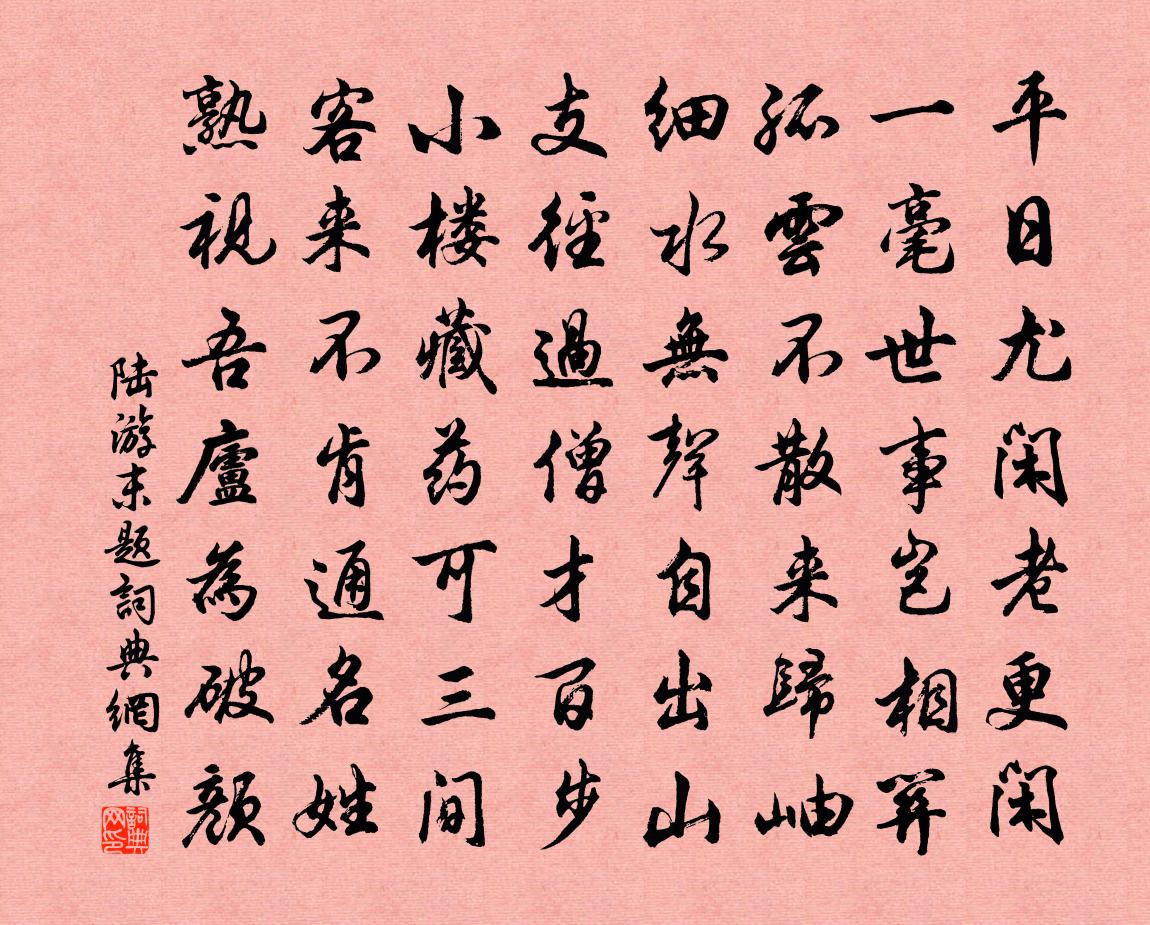 平日尤闲老更闲
一毫世事岂相關
孤雲不散来歸岫
細水無聲自出山
支徑過僧才百步
小楼藏药可三间
客来不肯通名姓
熟視吾廬為破顏
陆游末题詞典網集
詞典网印